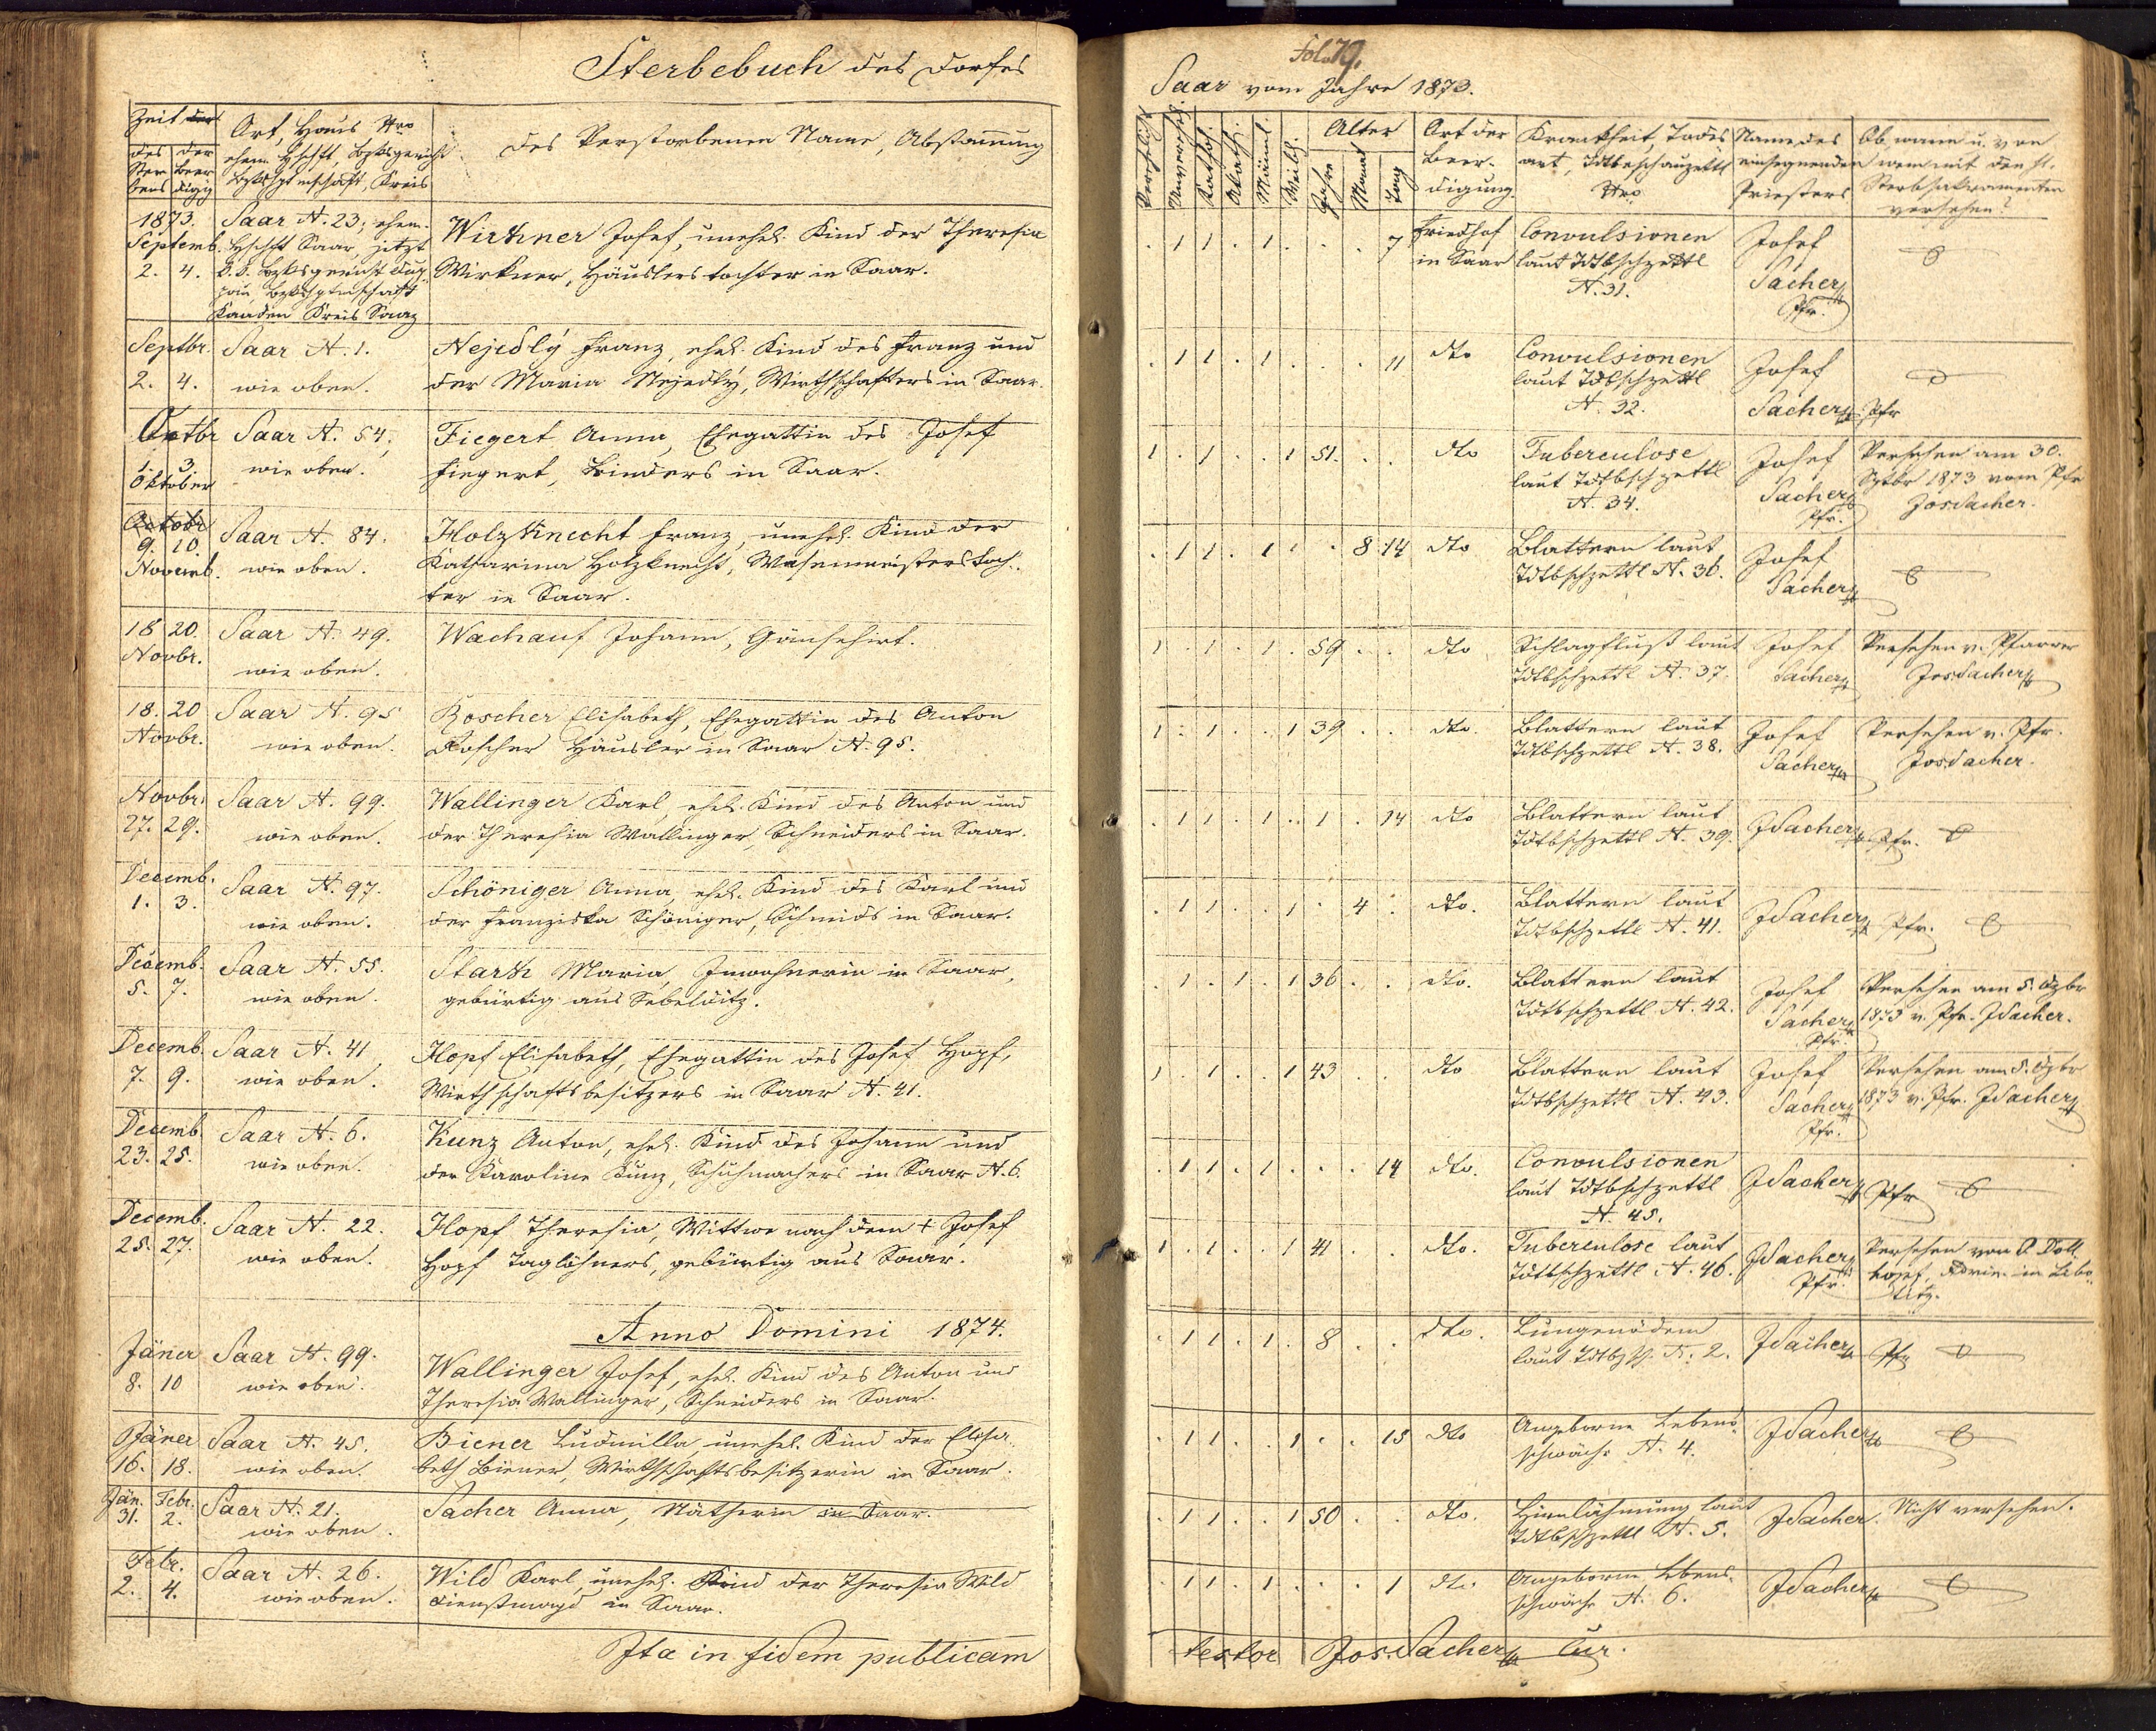 Sterbebuch des Dorfes
Zeit der
des Sterbens
der Beerdigg
Ort, Haus Nro
des Verstorbenen Name, Abstammung
1873. Saar N. 23; ehem.
Septemb. Hschft Saar, jetzt
2. 4. k. k. Bzksgericht
Kaaden Kreis Saaz
Wirkner Josef, unehel. Kind der Theresia
Wirkner, Häuslerstochter in Saar.
Septbr. Saar N. 1.
2. 4. wie oben.
Nejedlý Franz, ehel. Kind des Franz und
der Maria Nejedlý, Wirthschafters in Saar.
Saar N. 54,
1. 3. wie oben.
Oktober
Fiegert Anna, Ehegattin des Josef
Fiegert, Binders in Saar.
Octobr
9. 10. Saar N. 84.
Novemb. wie oben.
Holzknecht Franz, unehel. Kind der
Katharina Holzknecht, Wasenmeisterstoch-
ter in Saar.
18 20. Saar N. 49.
Novbr. wie oben.
Wachauf Johann, Gänsehirt.
18. 20 Saar N. 95
Novbr. wie oben.
Roscher Elisabeth, Ehegattin des Anton
Roscher Häusler in Saar N. 95.
Novbr. Saar N. 99.
27. 29. wie oben.
Wallinger Karl, ehel. Kind des Anton und
der Theresia Wallinger, Schneiders in Saar.
Decemb. Saar N. 97.
1. 3. wie oben.
Schöniger Anna, ehel. Kind des Karl und
der Franziska Schöniger, Schmids in Saar.
Decemb. Saar N. 55.
5. 7. wie oben.
Stark Maria, Inwohnerin in Saar,
gebürtig aus
Decemb. Saar N. 41
7. 9. wie oben.
Hopf Elisabeth, Ehegattin des Josef Hopf,
Wirthschaftsbesitzers in Saar N. 41.
Decemb. Saar N. 6.
23. 25. wie oben.
Kunz Anton, ehel. Kind des Johann und
der Karoline Kunz, Schuhmachers in Saar N. 6.
Decemb. Saar N. 22.
25. 27. wie oben.
Hopf Theresia, Wittwe nach dem + Josef
Hopf Taglöhners, gebürtig aus Saar.
Anno Domini 1874.
Jäner Saar N. 99.
8. 10 wie oben.
Wallinger Josef, ehel. Kind des Anton und
Theresia Wallinger, Schneiders in Saar.
Jäner Saar N. 45.
16. 18. wie oben.
Biener Ludmilla, unehel. Kind der Elisa-
beth Biener, Wirthschaftsbesitzerin in Saar.
Jän. Febr. Saar N. 21.
31. 2. wie oben.
Sacher Anna, Nätherin in Saar.
Febr. Saar N. 26.
2. 4. wie oben.
Wild Karl, unehel. Kind der Theresia Wild
Dienstmagd in Saar.
Ita in fidem publicam
fol. 79.
Saar vom Jahre 1873.
Unversehen
Kathol.
Akath.
Männl.
Weibl.
Alter
Jahre
Monat
Tag
Art der
Beer-
digung.
Krankheit, Todes-
art, Todtbeschauzettl
Nro
Name des
einsegnenden
Priesters
Ob, wann u. von
wem mit den hl.
Sterbsakramenten
versehen?
. 1 1 . 1 . . . 7 Friedhof in Saar
Convulsionen
laut Tdtbschzettl
N. 31.
Josef
Sacher
Pfr.
. 1 1 . 1 . . . 11 dto
Convulsionen
laut Tdtbschzettl
N. 32.
Josef
Sacher Pfr
1 . 1 . . 1 51. . . dto
Tuberculose
laut Tdtbschzettl
N. 34.
Josef
Sacher
Pfr.
Versehen am 30.
Sptbr 1873 vom Pfr
Jos Sacher.
. 1 1 . 1 . . 8 14 dto
Blattern laut
Tdtbschzettl N. 36.
Josef
Sacher
1 . 1 . 1 . 59 . . dto
Schlagfluß laut
Tdtbschzettl N. 37.
Josef
Sacher
Versehen v. Pfarrer
Jos Sacher
1 . 1 . . 1 39 . . dto.
Blattern laut
Tdtbschzettl N. 38.
Josef
Sacher
Versehen v. Pfr.
Jos Sacher.
. 1 1 . 1 . 1 . 14 dto
Blattern laut
Tdtbschzettl N. 39.
J Sacher Pfr.
. 1 1 . . 1 . 4 . dto.
Blattern laut
Tdtbschzettl N. 41.
J Sacher Pfr.
. 1 . 1 . 1 36 . . dto.
Blattern laut
Tdtbschzettl N. 42.
Josef
Sacher
Pfr.
Versehen am 5. Dzbr
1873 v. Pfr. J Sacher.
1 . 1 . . 1 43 . . dto
Blattern laut
Tdtbschzettl N. 43.
Josef
Sacher
Pfr.
Versehen am 5. Dzbr
1873 v. Pfr. J Sacher
. 1 1 . 1 . . . 14 dto.
Convulsionen
laut Tdtbschzettl
N. 45.
J Sacher Pfr
1 . 1 . . 1 41 . . dto.
Tuberculose laut
Tdtbschzettl N. 46.
J Sacher
Pfr.
Versehen von
. 1 1 . 1 . 8 . . dto.
Lungenödem
N. 2.
J Sacher Pfr
. 1 1 . . 1 . . 15 dto
Angeborne Lebens-
schwäche N. 4.
J Sacher
. 1 1 . . 1 50 . . dto.
Hirnlähmung laut
Tdtbschzettl N. 5.
J Sacher.
Nicht versehen.
. 1 1 . 1 . . . 1 dto.
Angeborne Lebens-
schwäche N. 6.
J Sacher
testor Jos. Sacher Cur.